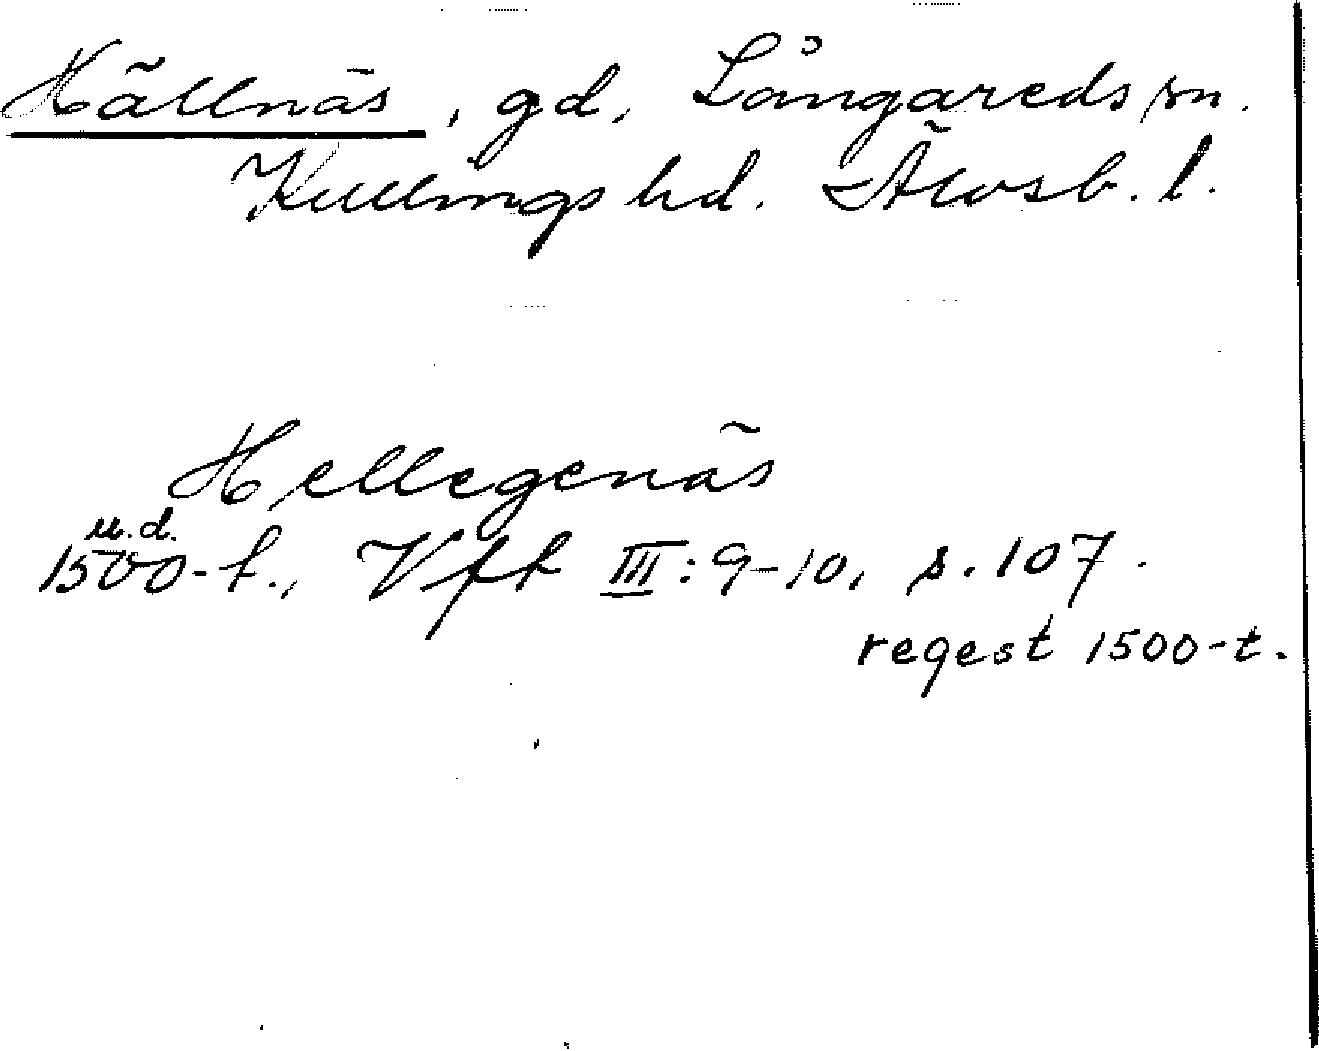 Hällnäs, gd, Långareds sn.
Kullings hd. Älvsb. l.
Hellegenäs
u.d.
1500-t., Vft III: 9-10, s. 107.
regest 1500-t.